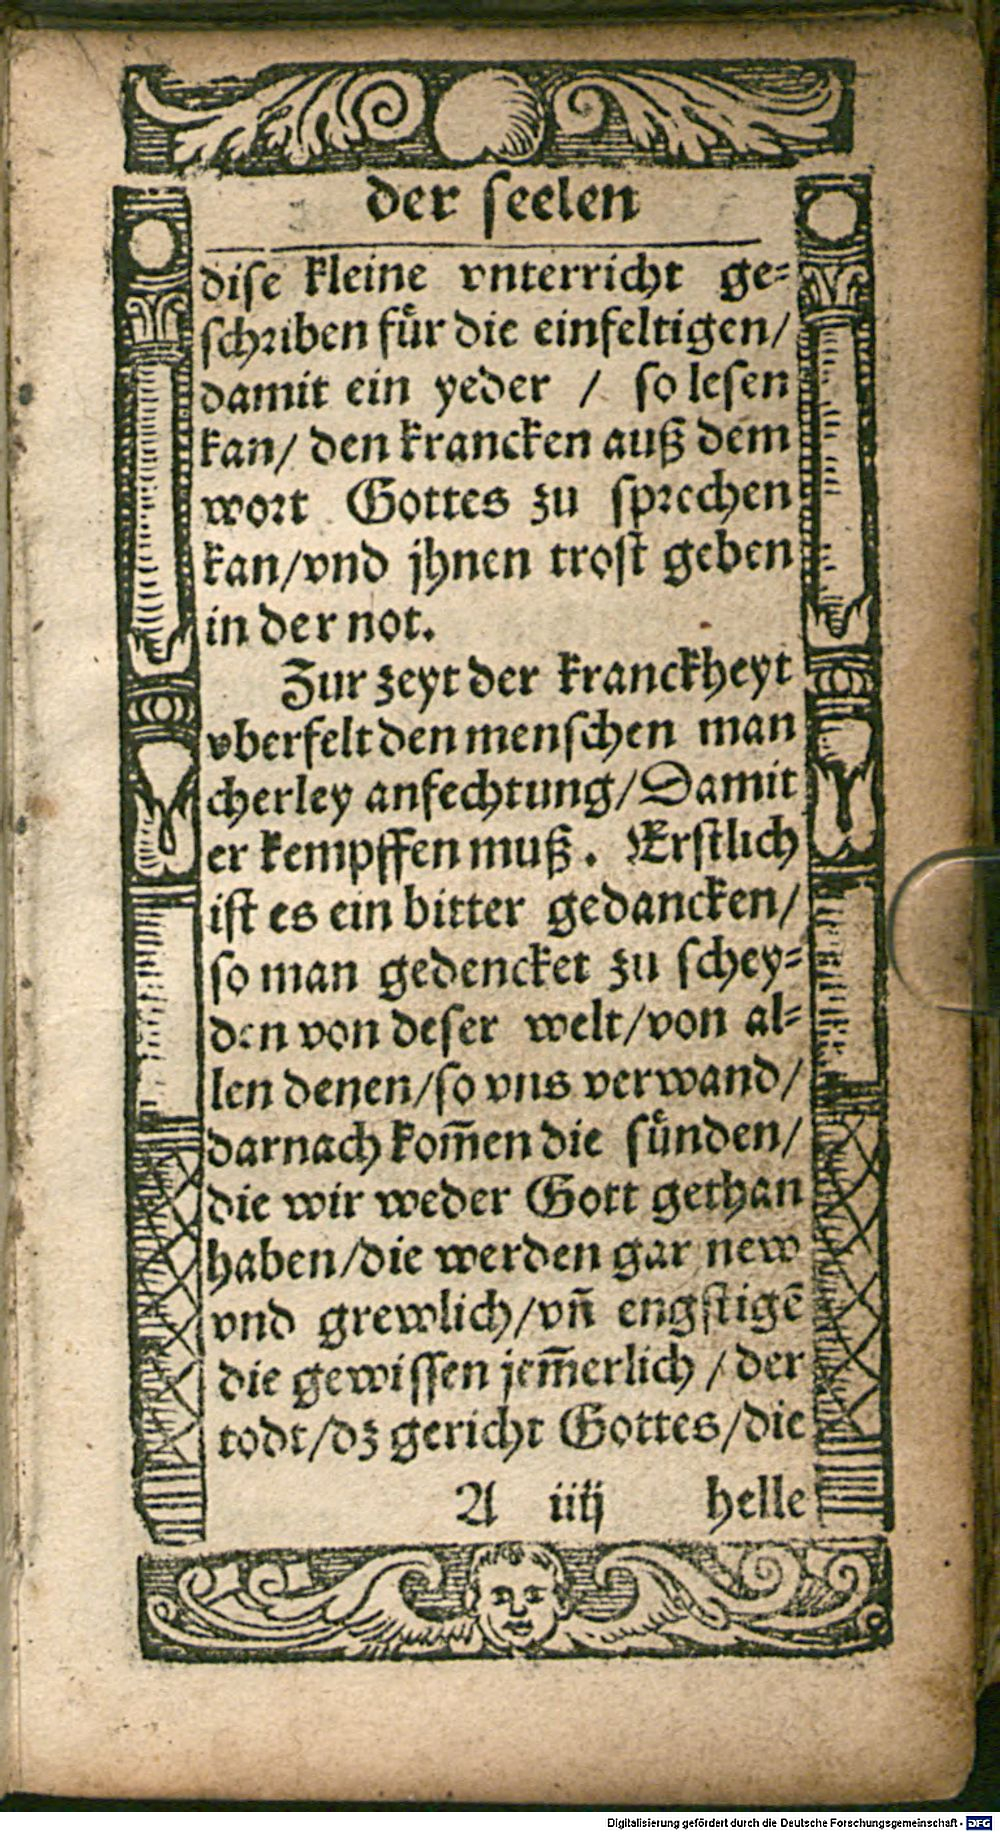 der seelen
dise kleine vnterricht ge-
schriben für die einfeltigen/
damit ein yeder / so lesen
kan/ den krancken auß dem
wort Gottes zu sprechen
kan/vnd jhnen trost geben
in der not.
Zur zeyt der kranckheyt
vberfelt den menschen man
cherley anfechtung/Damit
er kempffen muß. Erstlich
ist es ein bitter gedancken/
so man gedencket zu schey-
den von deser welt/von al-
len denen/so vns verwand/
darnach kom̄en die sünden/
die wir weder Gott gethan
haben/die werden gar new
vnd grewlich/vn̄ engstigē
die gewissen jem̄erlich / der
todt/dz gericht Gottes/die
A iiij helle
Digitalisierung gefördert durch die Deutsche Forschungsgemeinschaft - DFG